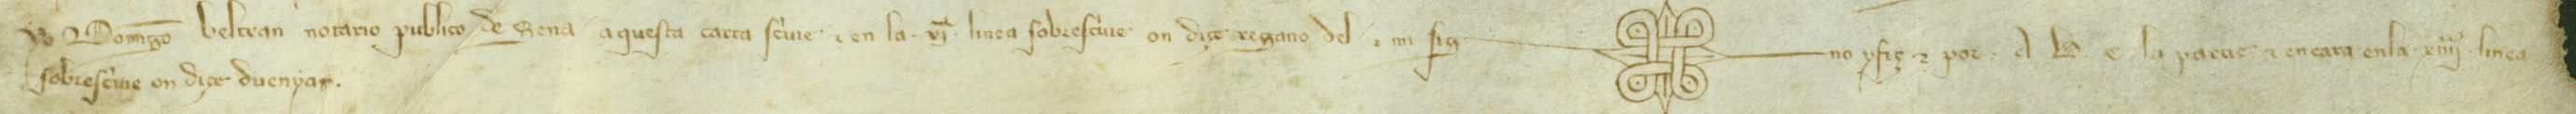 Yo Domingo beltran notario publico de Sena aquesta carta scriuie ⁊ en la ·vja· linea sobrescriuie on diçe regano del ⁊ mi sig no y fiç ⁊ por · A · B · C · la partie ⁊ encara en la xiiija· linea
sobrescriuie on diçe duenyas.